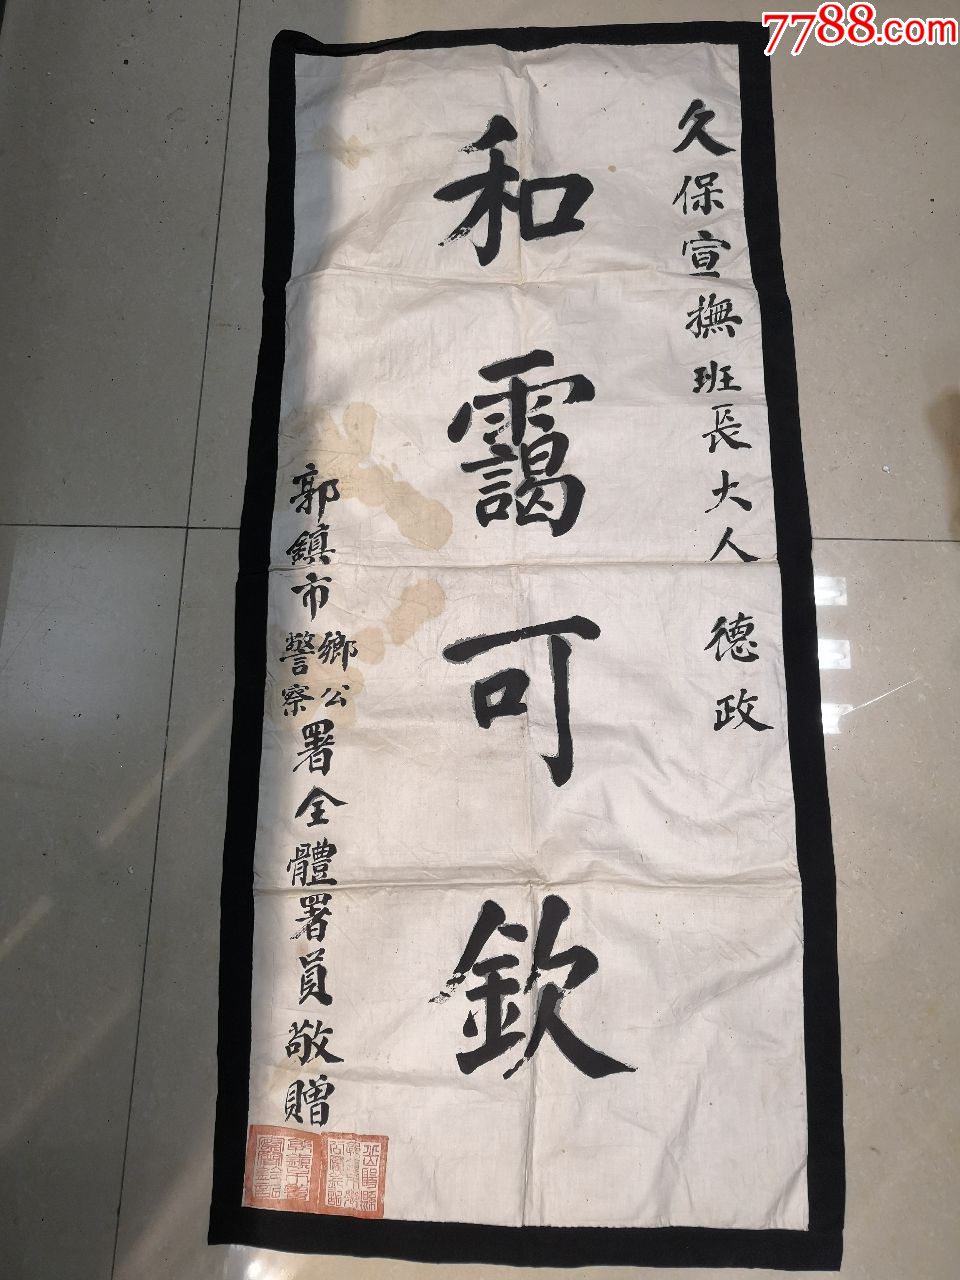 7788.com
久保宣撫班長大人 德政
和靄可欽
郭鎮市鄉公警察署全體署員敬贈